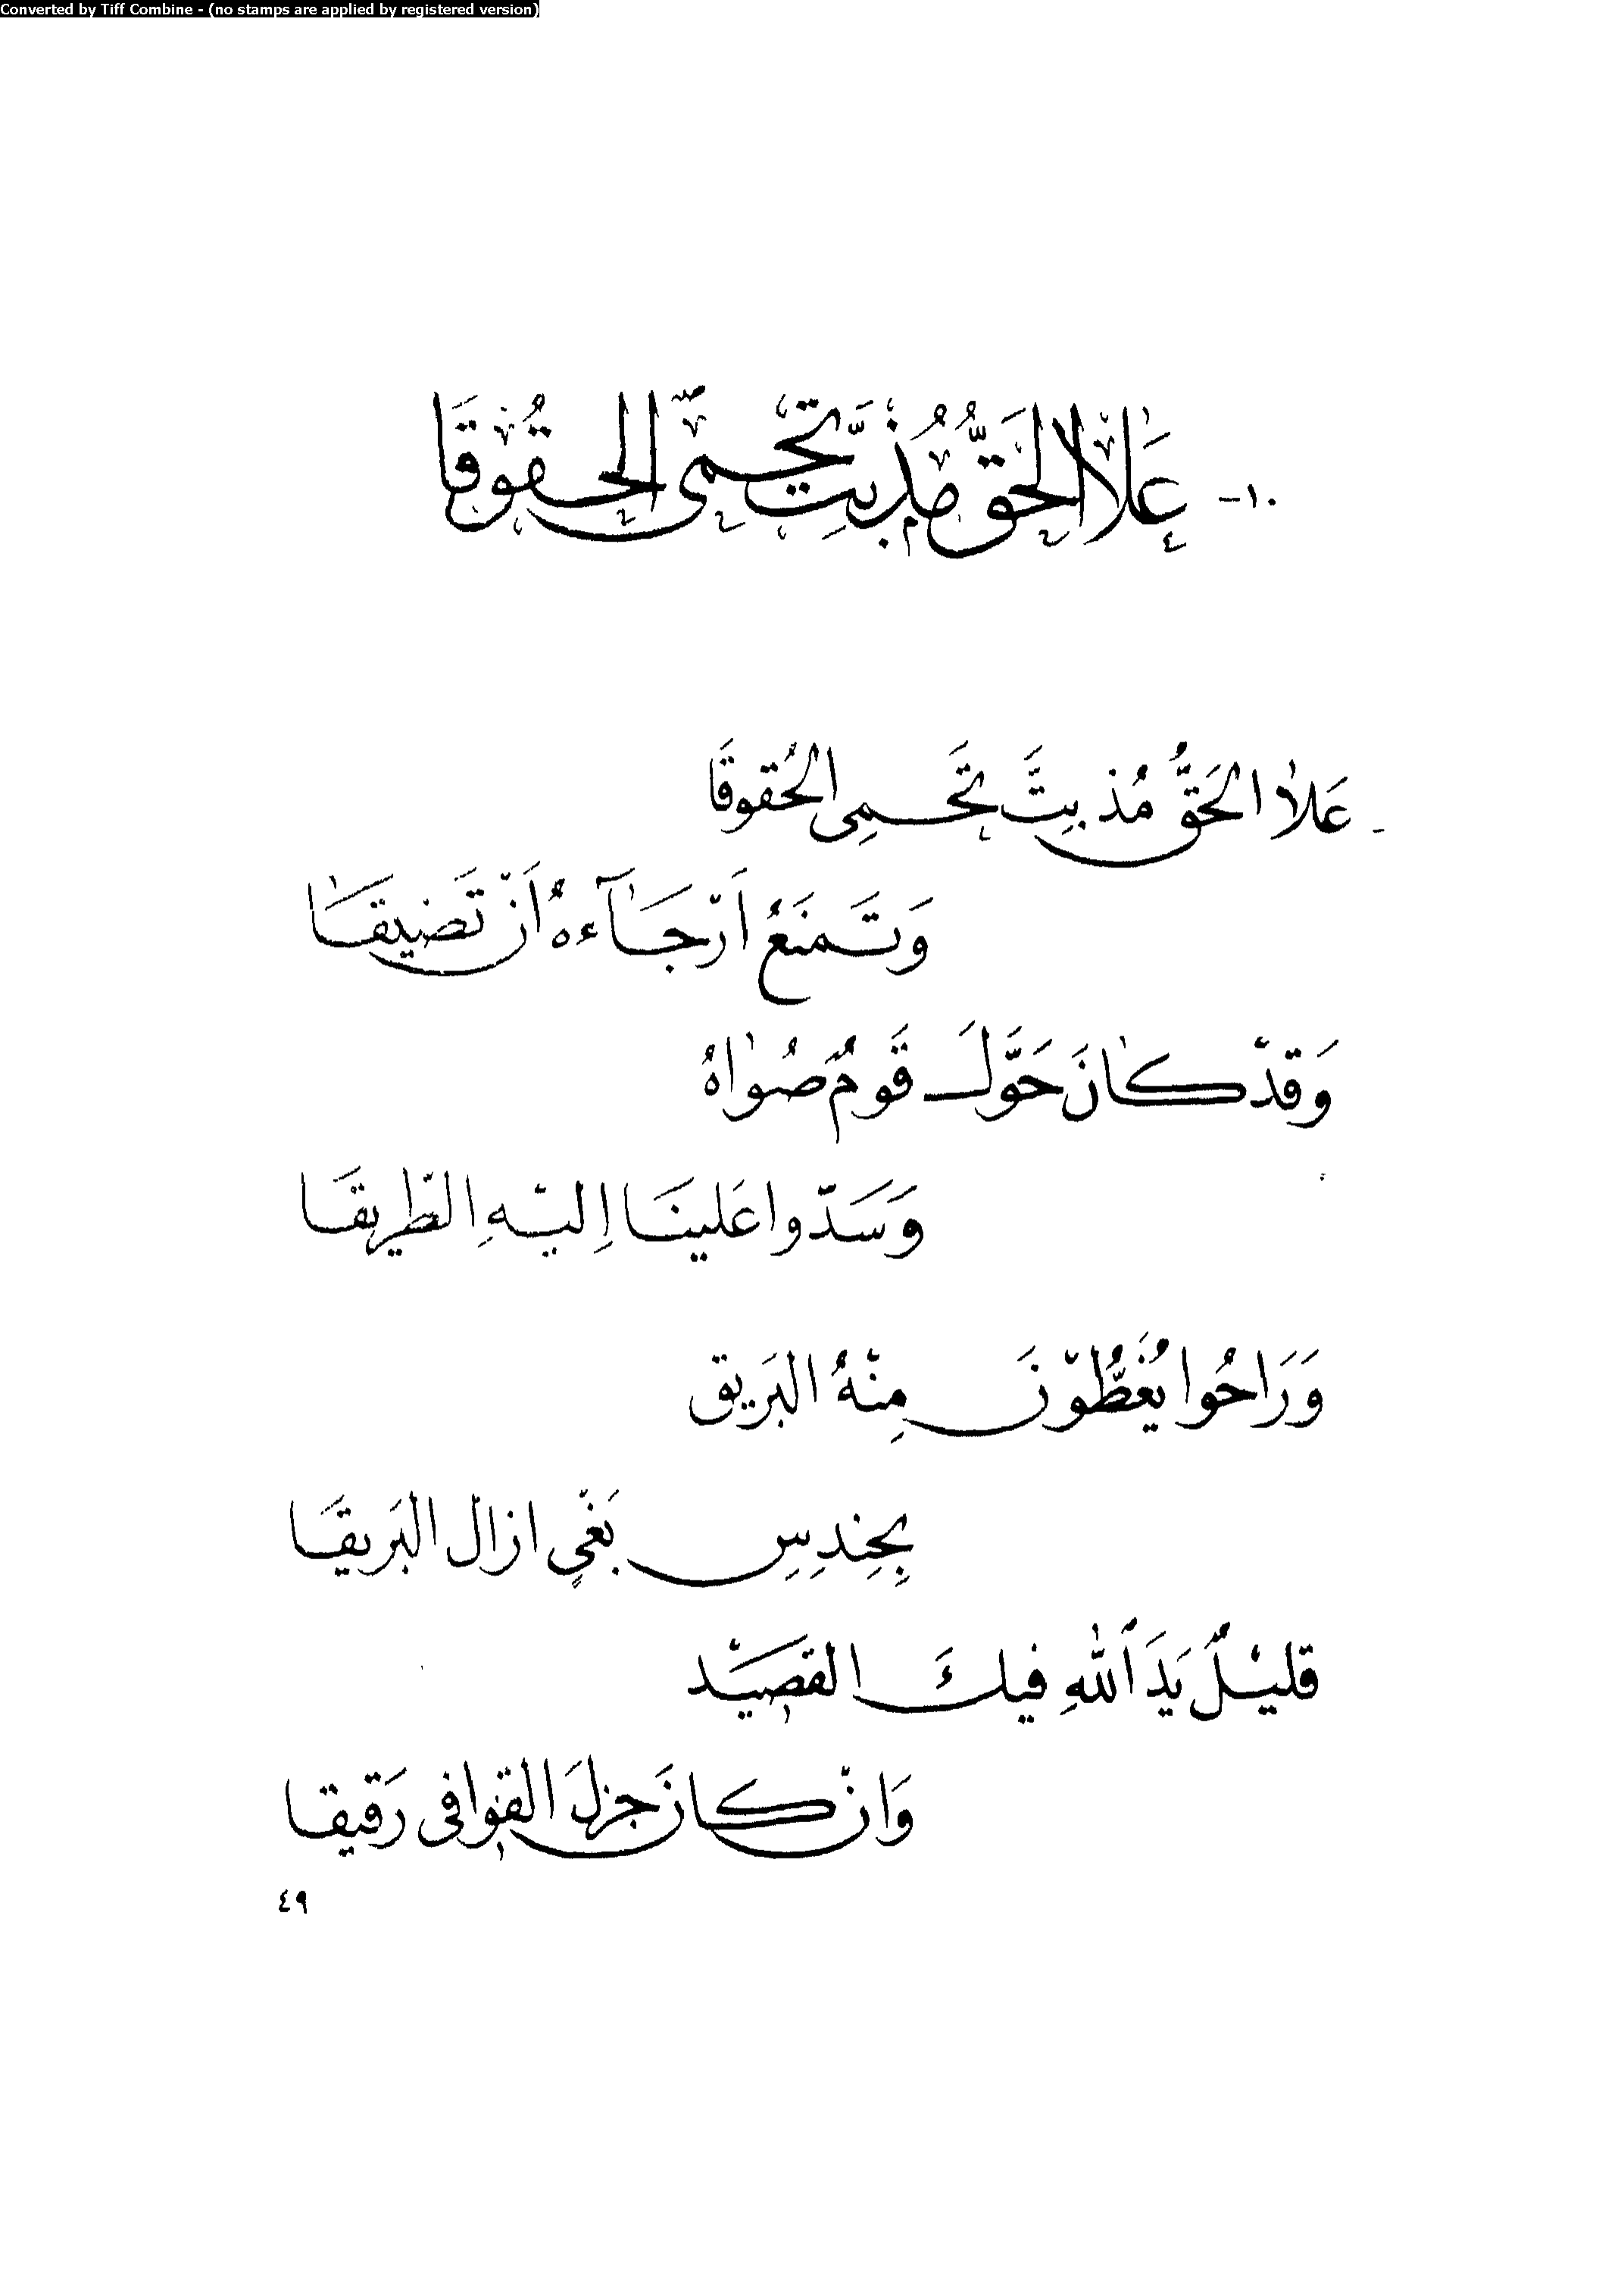 Converted by Tiff Combine - (no stamps are applied by registered version)
١٠- عَلَا الحَقُّ مُذْ بِتَّ تَحْمِي الحُقُوقَا
عَلَا الحَقُّ مُذ بِتَّ تَحمِى الحُقوقَا
وَتَمنَعُ أَرْجَآءهُ أَنْ تَضيقَا
وَقَدْ كانَ حَوَّلَ قَومٌ صُواهُ
وَسَدّوا عَلينَا اِليْهِ الطّرِيقَا
وَرَاحُوا يُغَطُّوْنَ مِنْهُ البَريق
بِحِندِسِ بَغْيٍ ازال البَريقَا
قليْلٌ يَدَ ٱللهِ فيكَ القصَيْد
وَانْ كانَ جزلَ القوافى رَقيقا
٤٩